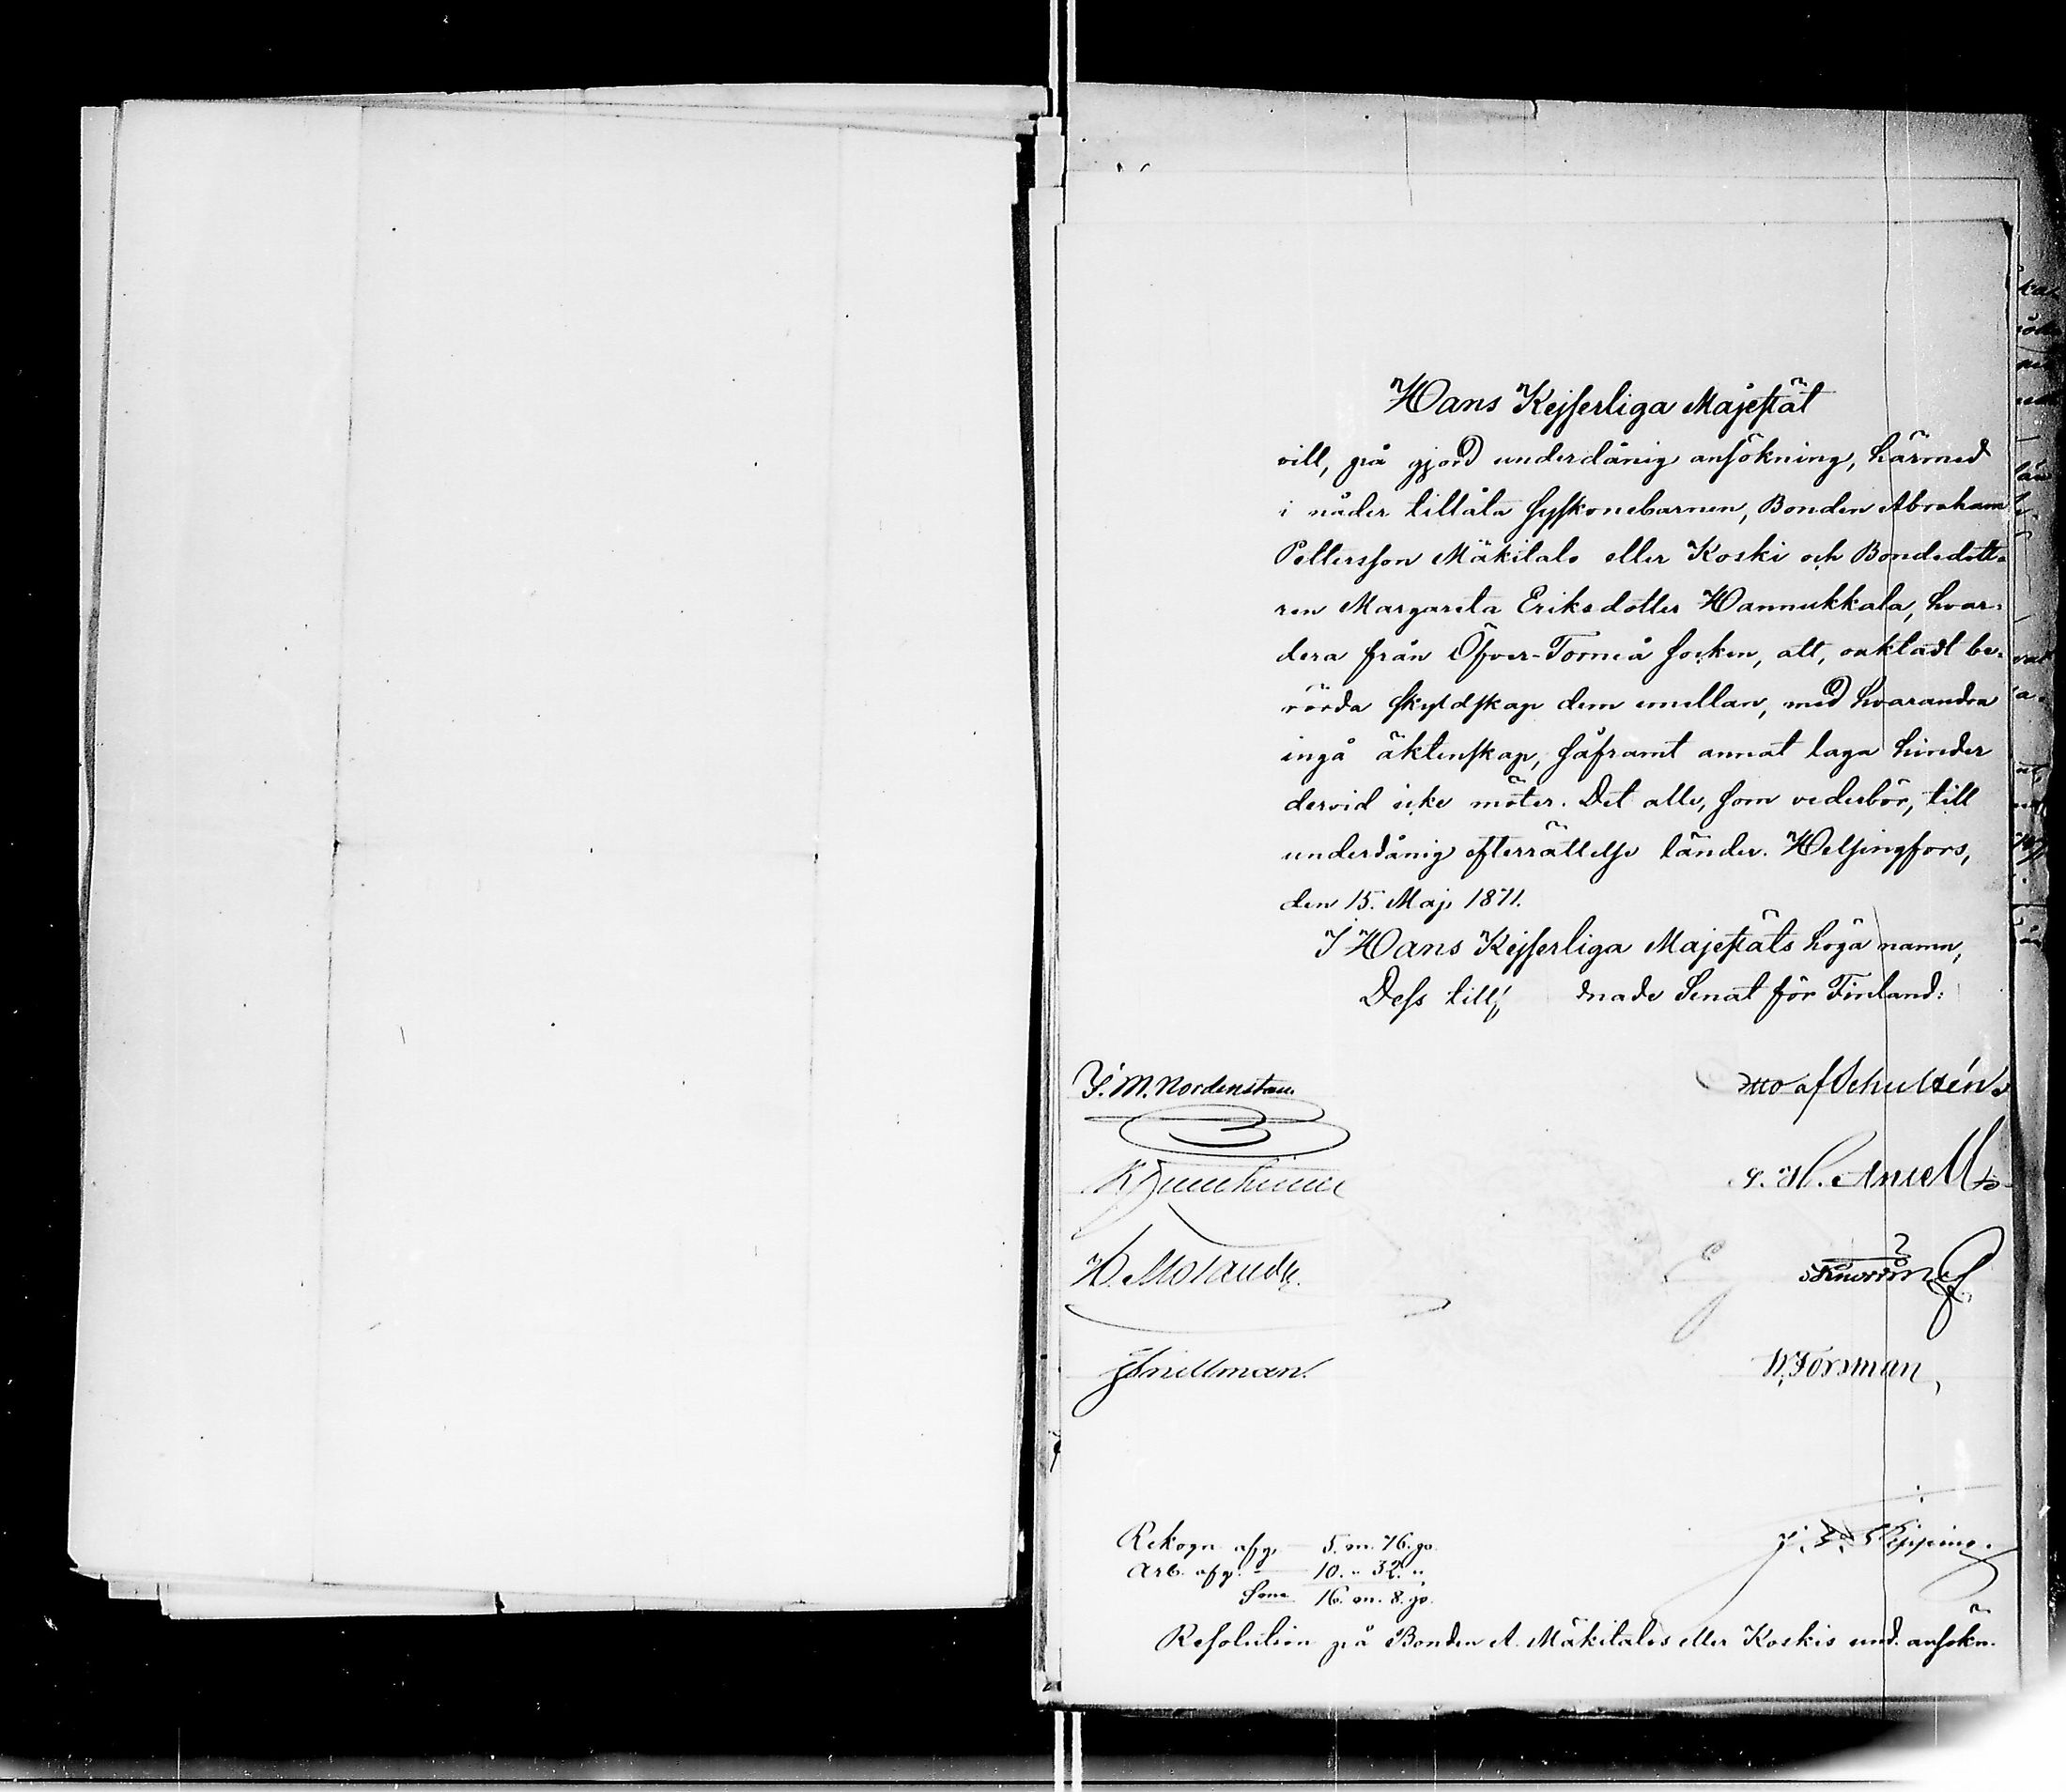 Hans Kejserliga Majestät
vill, på gjord underdånig ansökning, härmed
i nåder tillåta syskonebarnen, Bonden Abraham
Pettersson Mäkitalo eller Koski och Bondedott=
ren Margareta Eriksdotter Hannukkala, hvar=
dera från Öfver-Torneå socken, att, oaktadt be=
rörda skyldskap dem emellan, med hvarandra
ingå äktenskap, såframt annat laga hinder
dervid icke möter. Det alle, som vederbör, till
underdånig efterrättelse länder. Helsingfors,
den 15. Maj 1871.
I Hans Kejserliga Majestäts höga namn,
Dess till dnade Senat för Finland:
J. M. Nordenstam.
Otto af Schultén
S. H. Antell
H. Molander.
OKnorring
JSnellman.
W. Forsman,
Rekogn. afg. 5. m. 76. p.
Arb. afg. 10. " 32. "
Sma 16. m. 8. p.
Resolution på Bonden A. Mäkitalos eller Koskis und. ansökn.